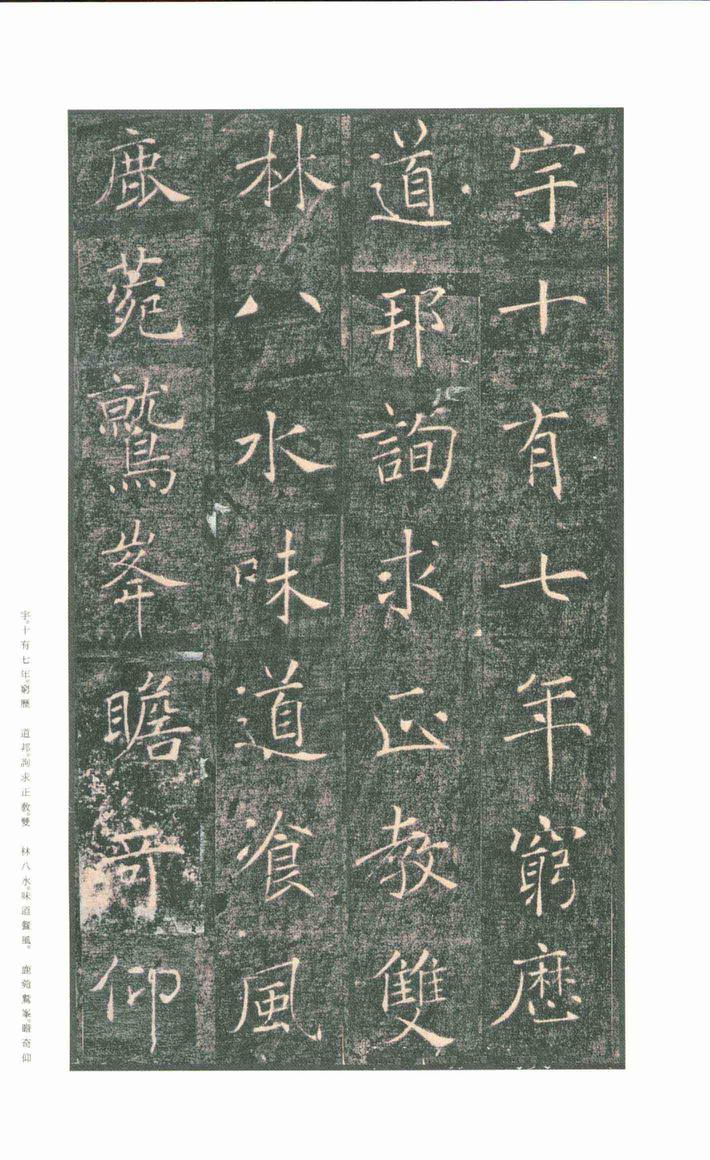 宇十有七年窮歷
道邦詢求正教雙
林八水味道飡風
鹿菀鷲峯瞻奇仰
宇。十有七年。窮歷　道邦。詢求正教。雙　林八水。味道飡風。　鹿菀鷲峯。瞻奇仰